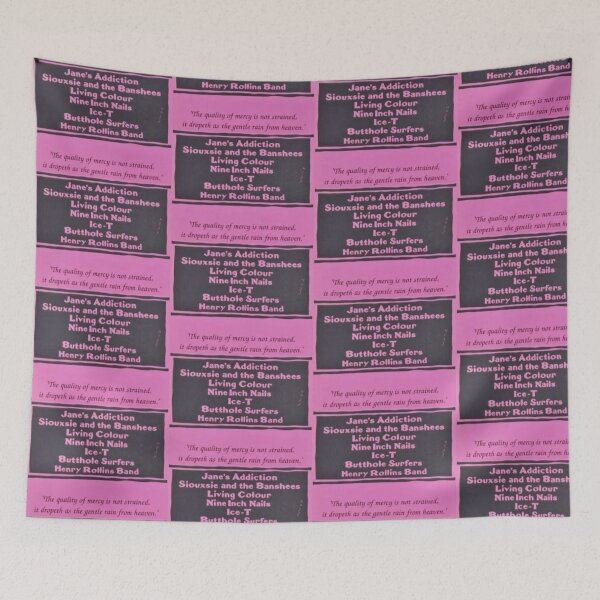 Jane's Addiction
Siouxsie and the Banshees
Living Colour
Nine Inch Nails
Ice-T
Butthole Surfers
Henry Rollins Band
'The quality of mercy is not strained,
it dropeth as the gentle rain from heaven.'
Jane's Addiction
Siouxsie and the Banshees
Living Colour
Nine Inch Nails
Ice-T
Butthole Surfers
Henry Rollins Band
'The quality of mercy is not strained,
it dropeth as the gentle rain from heaven.'
Jane's Addiction
Siouxsie and the Banshees
Living Colour
Nine Inch Nails
Ice-T
Butthole Surfers
Henry Rollins Band
'The quality of mercy is not strained,
it dropeth as the gentle rain from heaven.'
Jane's Addiction
Siouxsie and the Banshees
Living Colour
Nine Inch Nails
Ice-T
Butthole Surfers
Henry Rollins Band
'The quality of mercy is not strained,
it dropeth as the gentle rain from heaven.'
Henry Rollins Band
'The quality of mercy is not strained,
it dropeth as the gentle rain from heaven.'
Jane's Addiction
Siouxsie and the Banshees
Living Colour
Nine Inch Nails
Ice-T
Butthole Surfers
Henry Rollins Band
'The quality of mercy is not strained,
it dropeth as the gentle rain from heaven.'
Jane's Addiction
Siouxsie and the Banshees
Living Colour
Nine Inch Nails
Ice-T
Butthole Surfers
Henry Rollins Band
'The quality of mercy is not strained,
it dropeth as the gentle rain from heaven.'
Jane's Addiction
Siouxsie and the Banshees
Living Colour
Nine Inch Nails
Ice-T
Butthole Surfers
Henry Rollins Band
'The quality of mercy is not strained,
it dropeth as the gentle rain from heaven.
Jane's Addiction
Siouxsie and the Banshees
Living Colour
Nine Inch Nails
Ice-T
Butthole Surfers
Jane's Addiction
Siouxsie and the Banshees
Living Colour
Nine Inch Nails
Ice-T
Butthole Surfers
Henry Rollins Band
'The quality of mercy is not strained,
it dropeth as the gentle rain from heaven.'
Jane's Addiction
Siouxsie and the Banshees
Living Colour
Nine Inch Nails
Ice-T
Butthole Surfers
Henry Rollins Band
'The quality of mercy is not strained,
it dropeth as the gentle rain from heaven.'
Jane's Addiction
Siouxsie and the Banshees
Living Colour
Nine Inch Nails
Ice-T
Butthole Surfers
Henry Rollins Band
'The quality of mercy is not strained,
it dropeth as the gentle rain from heaven.'
Jane's Addiction
Siouxsie and the Banshees
Living Colour
Nine Inch Nails
Ice-T
Butthole Surfers
Henry Rollins Band
'The quality of mercy is not strained,
it dropeth as the gentle rain from heaven.'
Henry Rollins Band
'The quality of mercy is not strained,
it dropeth as the gentle rain from
Jane's Addiction
Siouxsie and the Banshees
Living Colour
Nine Inch Nails
Ice-T
Butthole Surfers
Henry Rollins Band
'The quality of mercy is not strained,
it dropeth as the gentle rain from
Jane's Addiction
Siouxsie and the Banshees
Living Colour
Nine Inch Nails
Ice-T
Butthole Surfers
Henry Rollins Band
'The quality of mercy is not strained,
it dropeth as the gentle rain from
Jane's Addiction
Siouxsie and the Banshees
Living Colour
Nine Inch Nails
Ice-T
Butthole Surfers
Henry Rollins Band
'The quality of mercy is not strained,
it dropeth as the gentle rain from
Jane's Addiction
Siouxsie and the Banshees
Living Colour
Nine Inch Nails
Ice-T